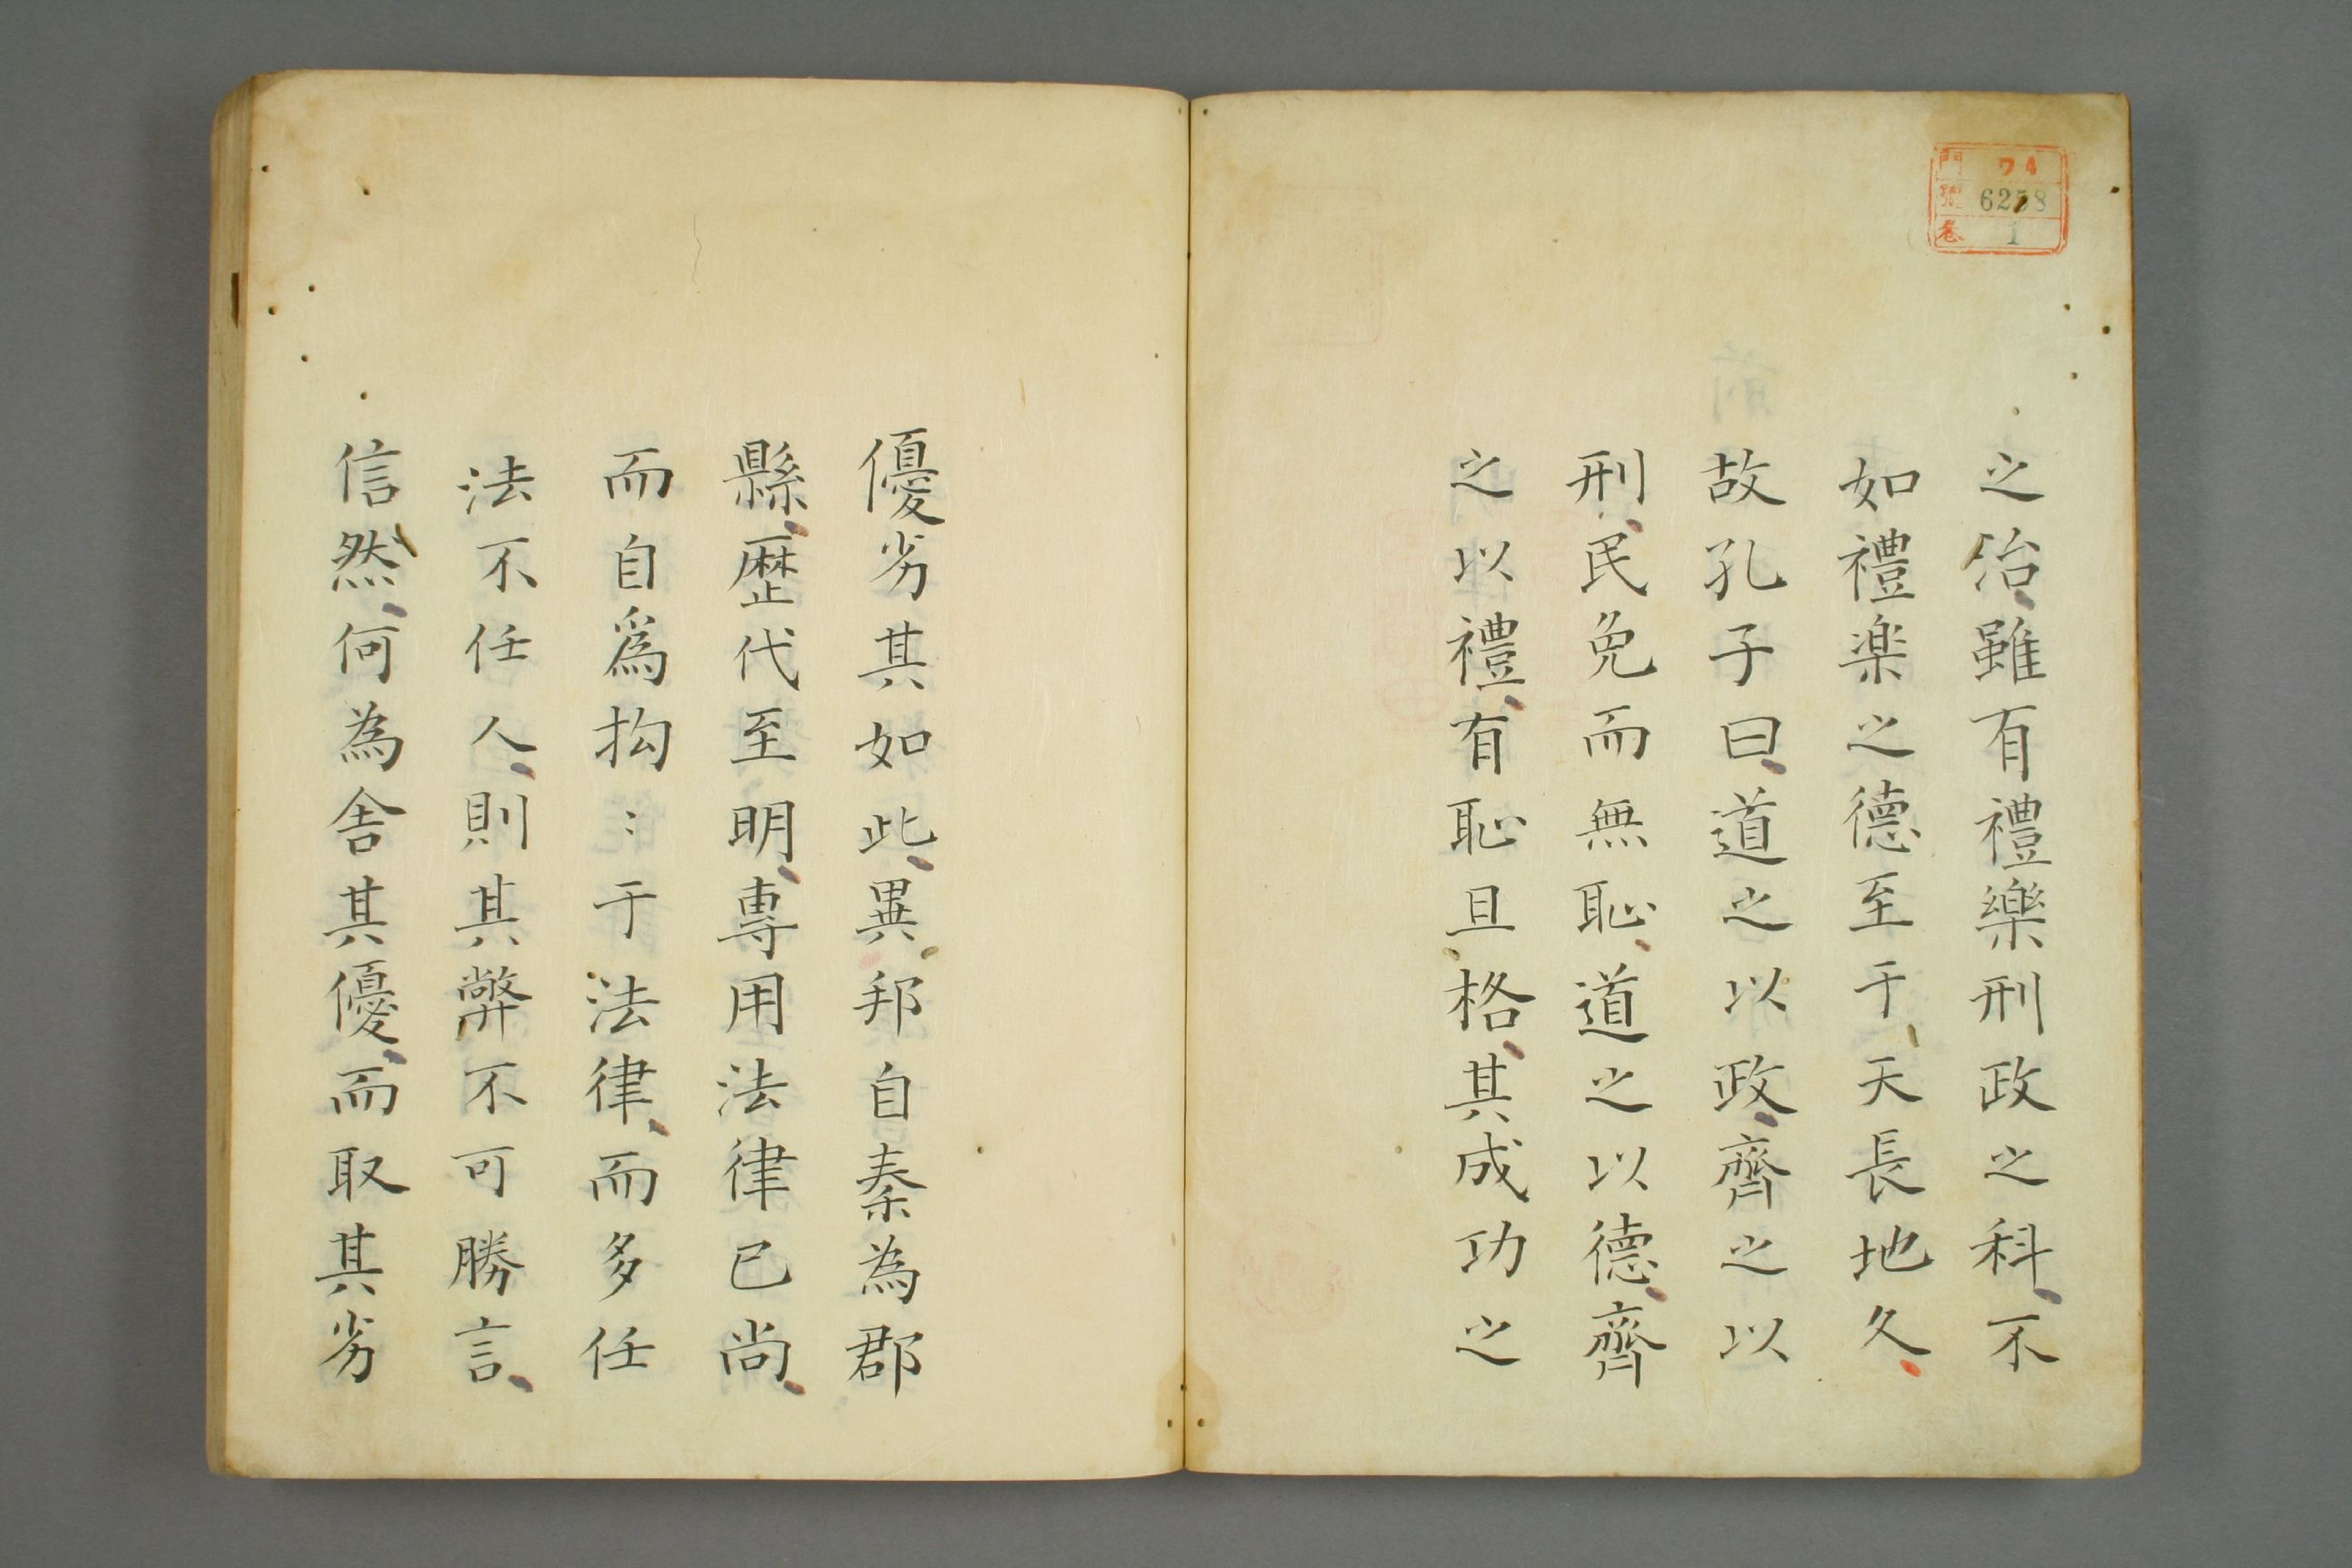 門 ワ4
號 6258
卷 1
之治雖有禮樂刑政之科不
如禮楽之德至于天長地久
故孔子曰道之以政齊之以
刑民免而無恥道之以德齊
之以禮有恥且格其成功之
優劣其如此異邦自秦為郡
縣歴代至明專用法律已尚
而自爲拘〻于法律而多任
法不任人則其弊不可勝言
信然何為舍其優而取其劣